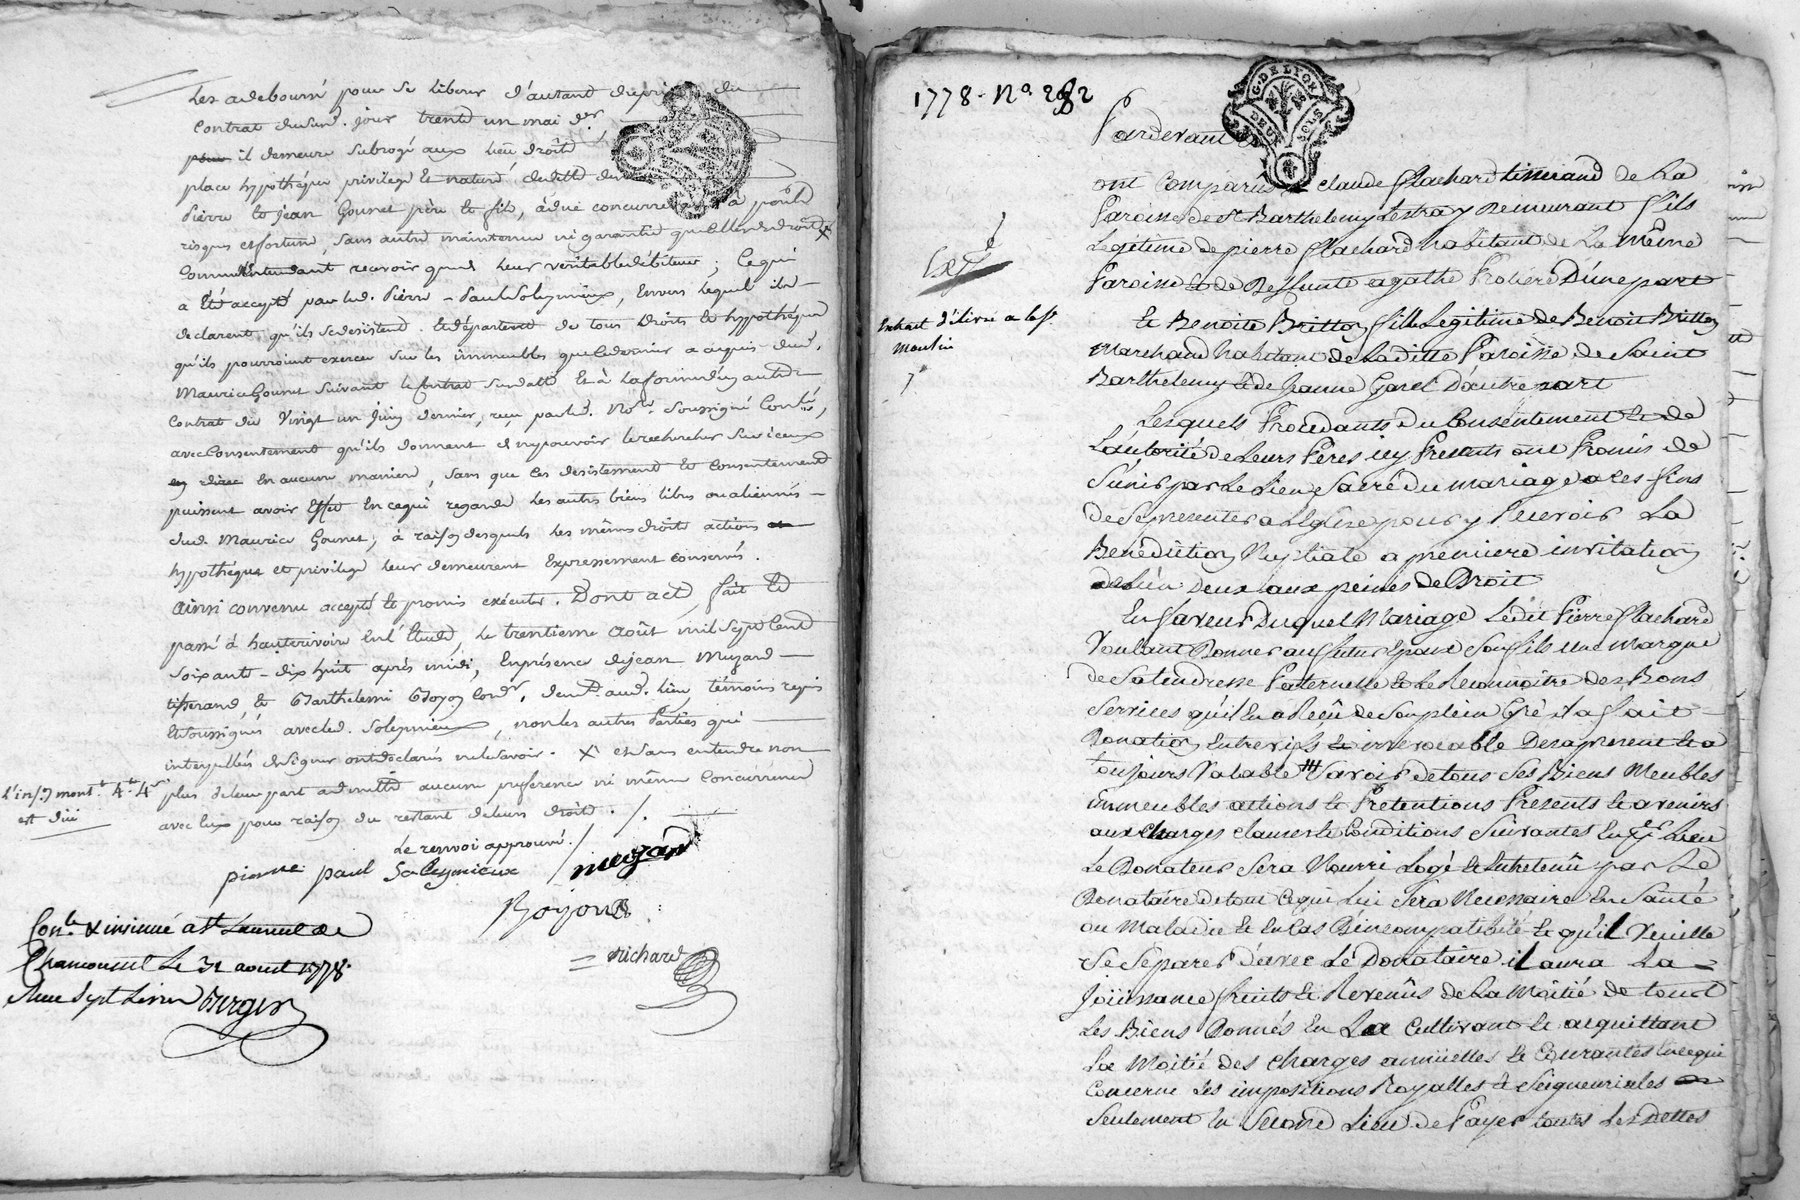 Les a debourcé pour se liberer d'autant du prix du
Contrat dususd. jour trente un mai der
il demeure subrogé aux lieu droits
place hypotheque privilege et nature de dette
Pierre et jean Gounet père et fils, à due concurrence à pérte
risques et fortune, sans autre maintenue ni garantie que celle de droit X
Comm entendant recevoir que de leur veritable debiteur ; Ce qui
a Eté accepté par led. Pierre - Paul Soleymieux, Envers lequel ils -
declarent qu'ils se desistent. Et departent de tous Droits et hypotheques
qu'ils pourroient exercer sur les immeubles que ce dernier a acquis dud.
Maurice Gounet suivant le Contrat susdatté Et à la forme d'un autre
Contrat du Vingt un Juin dernier, reçu par led. Nore. Soussigné Conlé,
avec Consentement qu'ils donnent de ne pouvoir le rechercher sur iceux
en aucune maniere, sans que ces desistement et Consentement
puissent avoir Effet En ce qui regarde Les autres biens libres ou aliennés -
dud. Maurice Gounet, à raison desquels les mêmes droits actions
hypothéques et privilege leur demeurent Expressement conservés.
Ainsi convenu accepté et promis exécuter. Dont acte, fait Et
passé à hauterivoire En l'Etude, Le trentieme Août mil Sept Cent
soixante - dix huit après midi, En présence de jean Muzard -
tisserand, et Barthelemi Boyon Cordr. demts. aud. lieu, témoins requis
Et soussignés avec led. Soleymieux, non les autres Parties qui
interpellées de signer ont declarés ne le savoir. X et sans entendre non
plus de leur part admettre aucune preference ni même Concurrence
avec lux pour raison du restant de leurs droits ./.
L'inson montt. 4tt. 4s
est dûe
Le renvoi approuvé.
pierre paul Soleymieux
muzard
Boyon
Richard
Conlé & insinué a St Laurent de
Chamousset Le 31 aout 1778.
Reçu Sept Livres Burgin
1778 - No 282
G. DE LYON
DEUX SOLS
Pardevant
ont comparus claude flachard tisserand de La
Paroisse de St Barthelemy Lestra y Demeurant fils
Legitime de pierre flachard habitant de La même
Paroisse et de Deffunte agathe D'une part
Extrait délivré a la fe.
Moulin
Et Benoite Britton fille Legitime de Benoit Britton
Marchand habitant de Laditte Paroisse de Saint
Barthelemy et de Jeanne Garel D'autre part
Lesquels Procedants du Consentement et de
L'autorité de Leurs Peres icy Presents ont Promis de
S'unir par Le Lien Sacré du mariage a ces fins
de Se presenter a L'Eglise pour y Recevoir La
Bénédiction Nuptiale a premiere invitation
de L'un Deux aux peines de Droit
En faveur Duquel Mariage Ledit Pierre flachard
Voulant Donner au futur Epoux Son fils une Marque
de Sa tendresse Paternelle et Le Reconnoitre des Bons
Services qu'il En a Reçû de Son plein Gré il a fait -
Donation Entrevifs et irrevocable Des a present et a
toujours Valable Savoir de tous Ses Biens Meubles
immeubles actions et Prétentions Presents et avenirs
aux charges clauses et Conditions Suivantes En 1er Lieu
Le Donateur Sera Nourri Logé et Entretenû par Le
Donataire de tout Ce qui Lui Sera Necessaire En Santé
ou Maladie Et En Cas D'incompatibilité Et qu'il Veuille
Se Séparer d'avec Le Donataire il aura La -
Joüissance fruits et Revenûs de La Moitié de tout
Les Biens Donnés En La Cultivant et acquittant
La Moitié des charges annüelles et Courantes En ce qui
Concerne Les impositions Royalles et Seigneuriales
Seulement En Second Lieu de Payer toutes Les Dettes